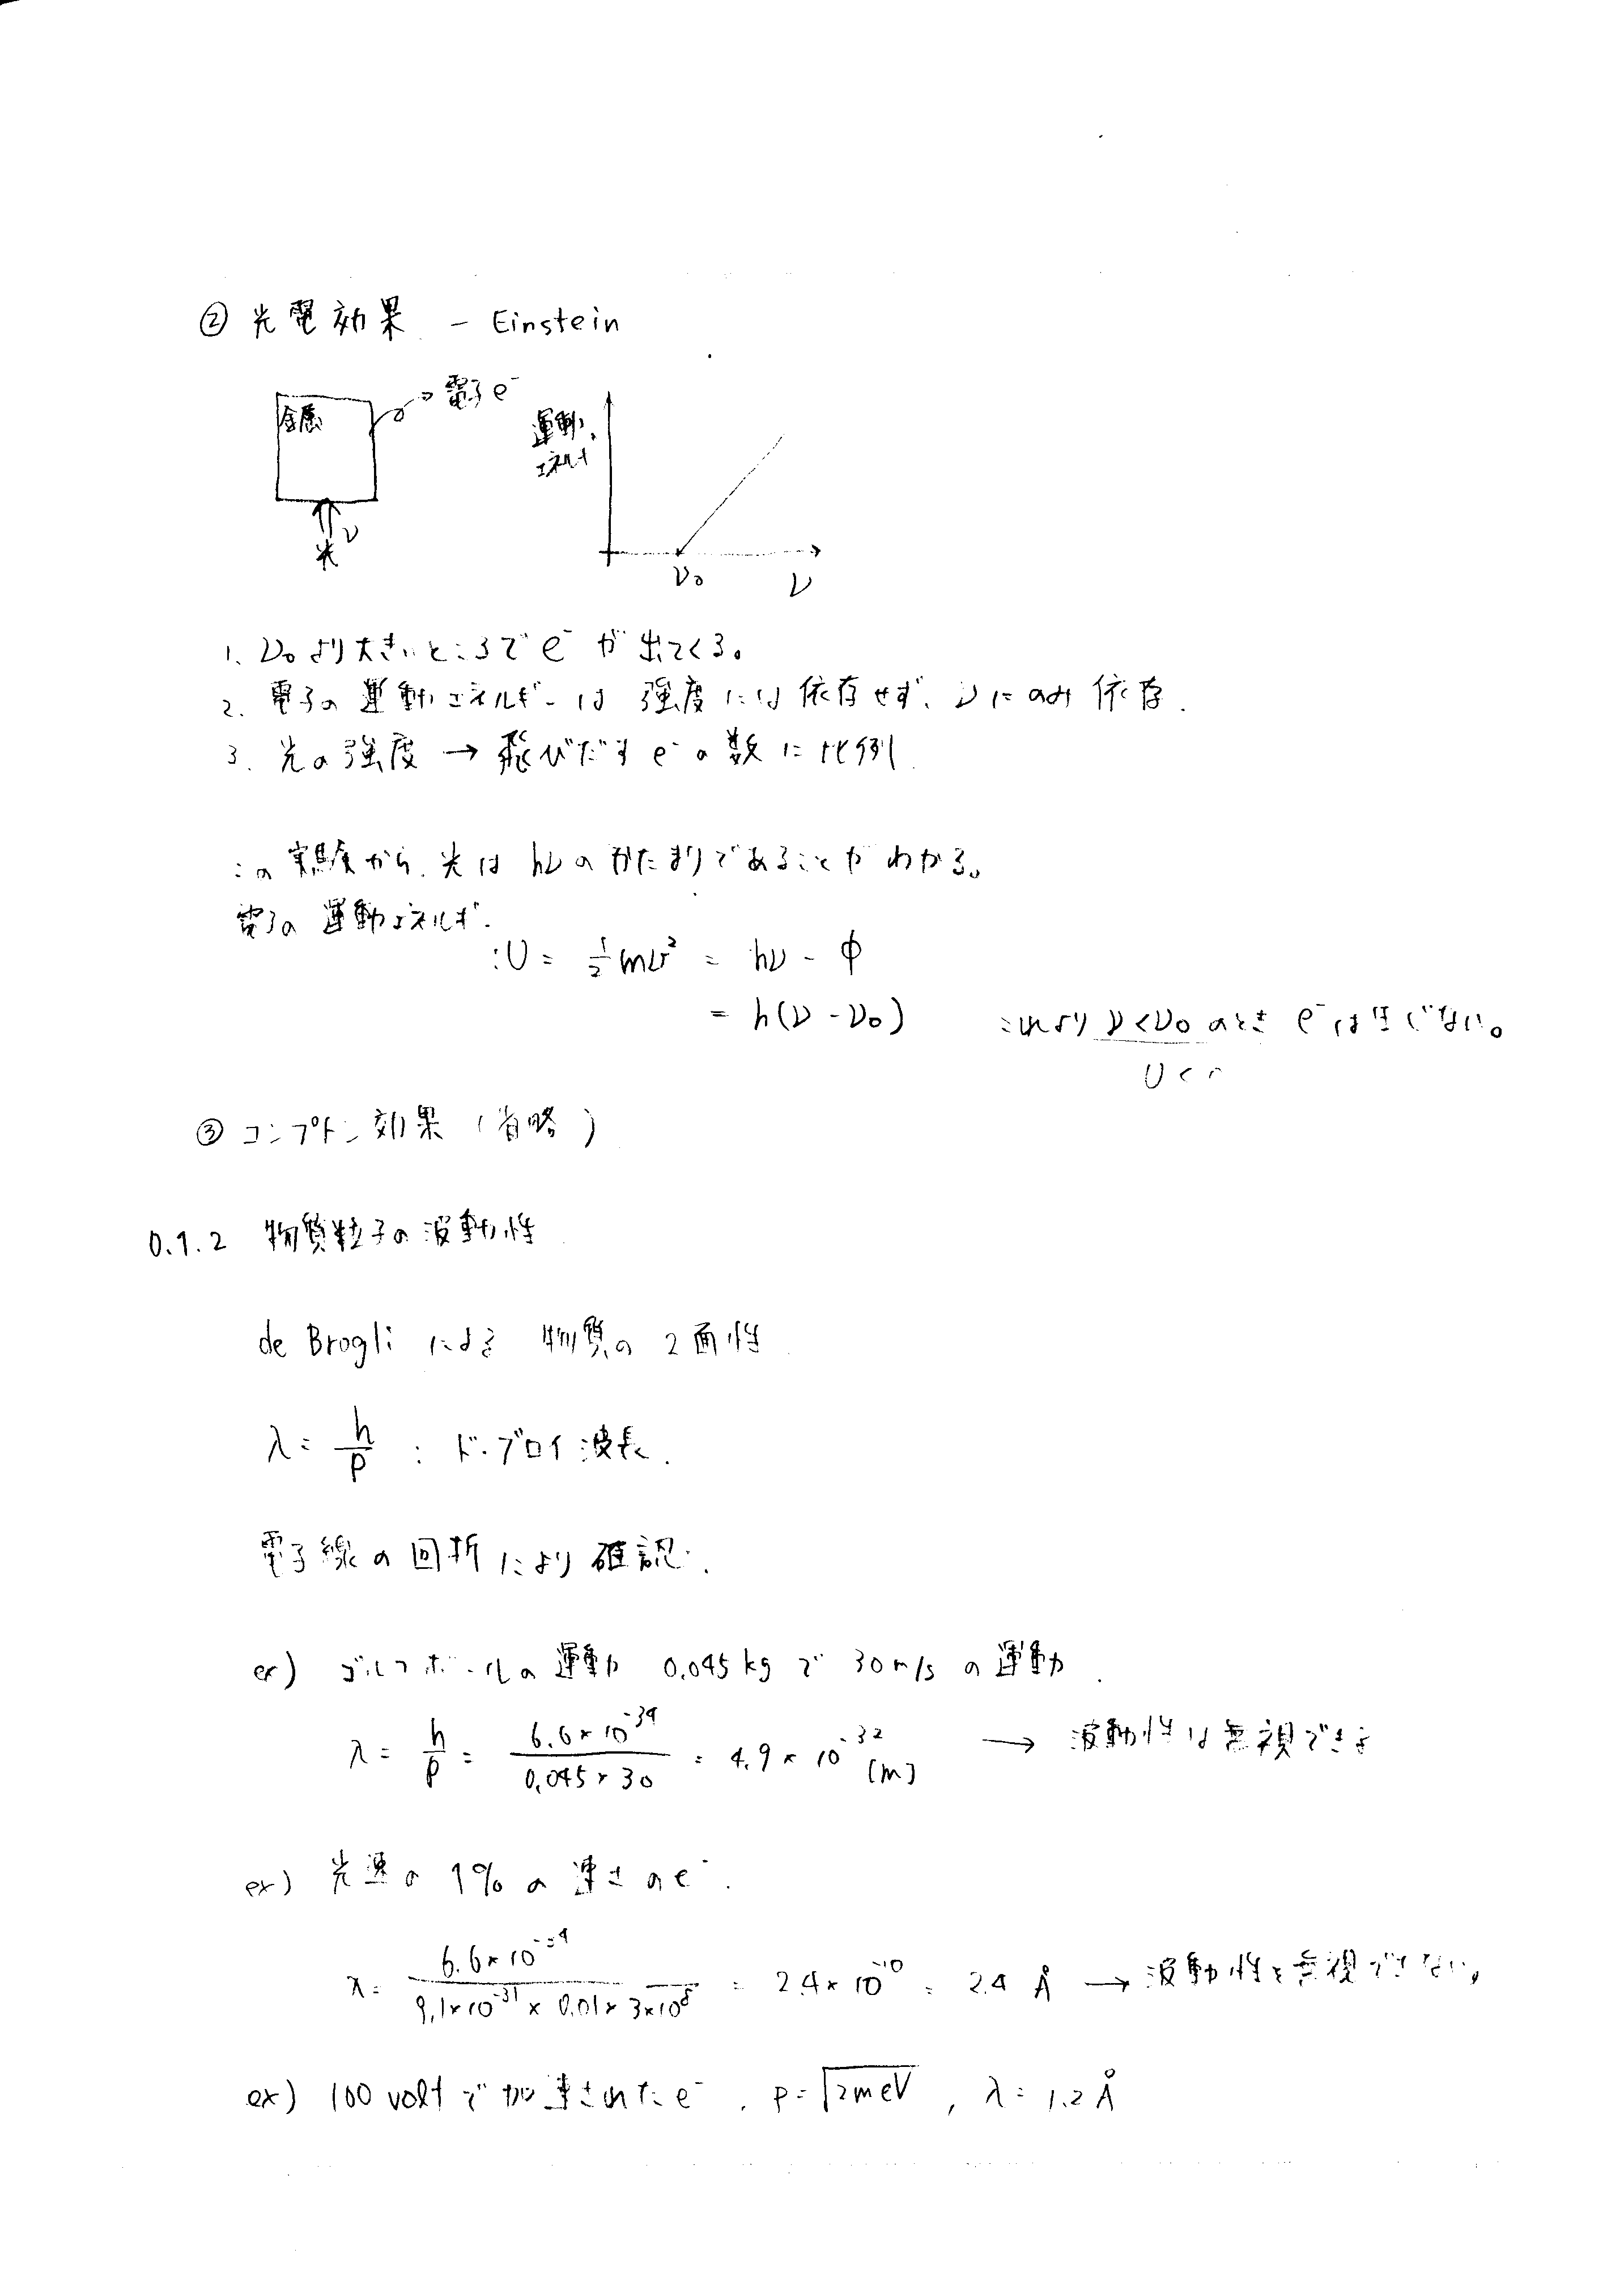 ② 光電効果 - Einstein
金属
電子 e⁻
ν
光
運動
エネルギ
ν₀
ν
1. ν₀より大きいところで e⁻ が 出てくる。
2. 電子の 運動エネルギーは 強度には 依存せず、νにのみ 依存.
3. 光の強度 → 飛びだす e⁻の数に比例
この実験から、光は hνのかたまりであることがわかる。
電子の運動エネルギ.
: U = 1/2 mv² = hν - φ
= h(ν - ν₀) これより ν<ν₀ のとき e⁻は生じない。
U <
③ コンプトン効果 (省略)
0.1.2 物質粒子の波動性
de Brogli による 物質の 2面性
λ = h/p : ド・ブロイ波長.
電子線の回折により確認.
ex) ゴルフボールの運動 0.045kg で 30m/s の運動.
λ = h/p = 6.6×10⁻³⁴ / 0.045×30 = 4.9×10⁻³² [m] → 波動性は無視できる
ex) 光速の 1% の速さの e⁻.
λ = 6.6×10⁻³⁴ / 9.1×10⁻³¹ × 0.01 × 3×10⁸ = 2.4×10⁻¹⁰ = 2.4 Å → 波動性を無視できない。
ex) 100 volt で加速された e⁻. p = √2meV , λ = 1.2 Å